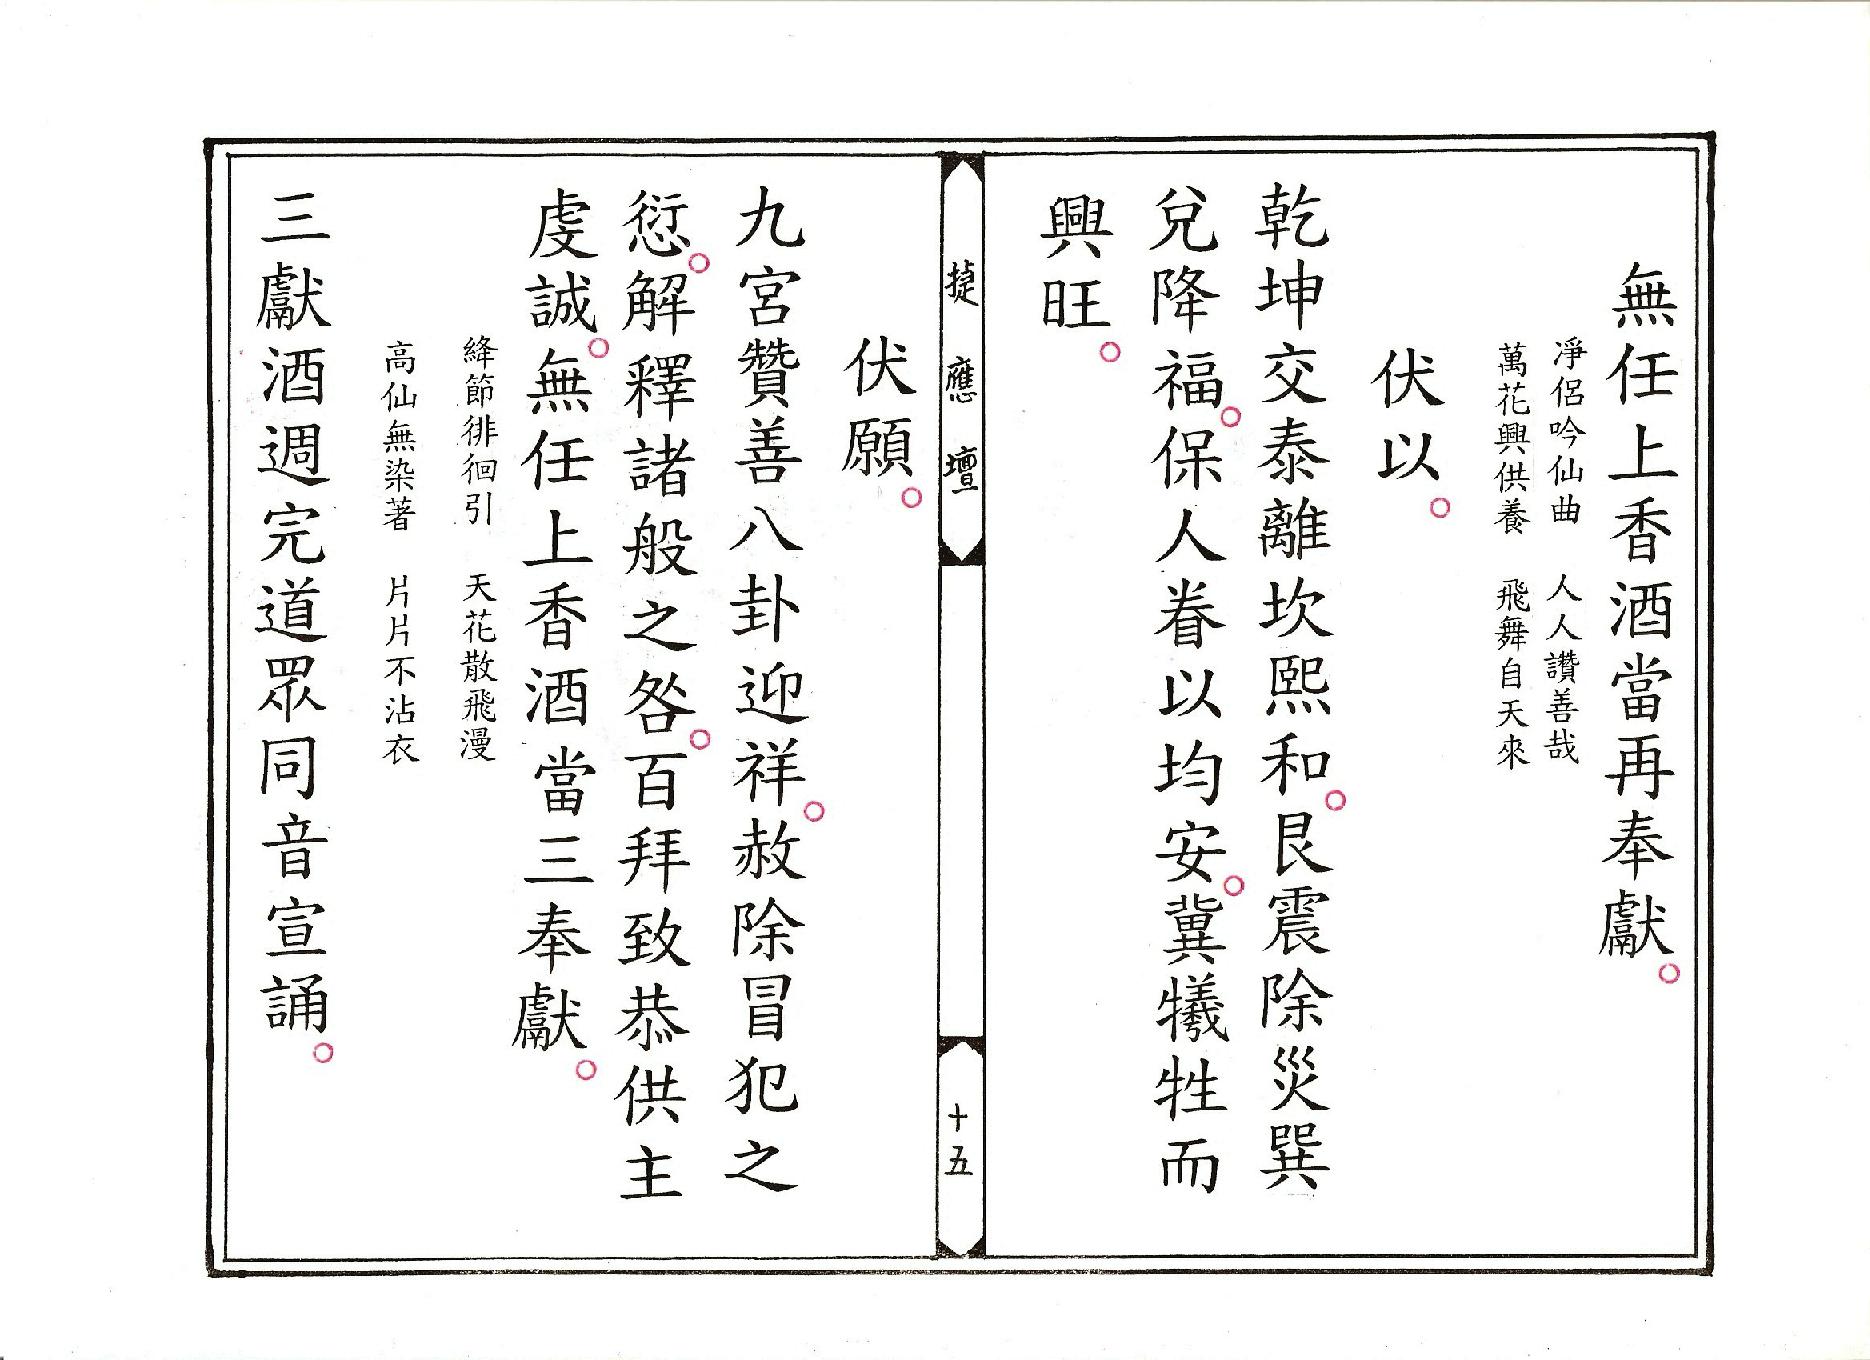 無任上香酒當再奉獻。
淨侶吟仙曲 人人讚善哉
萬花興供養 飛舞自天來
伏以。
乾坤交泰離坎熙和。艮震除災巽
兌降福。保人眷以均安。冀犧牲而
興旺。
捷應壇
十五
伏願。
九宮贊善八卦迎祥。赦除冒犯之
愆。解釋諸般之咎。百拜致恭供主
虔誠。無任上香酒當三奉獻。
絳節徘徊引 天花散飛漫
高仙無染著 片片不沾衣
三獻酒週完道眾同音宣誦。